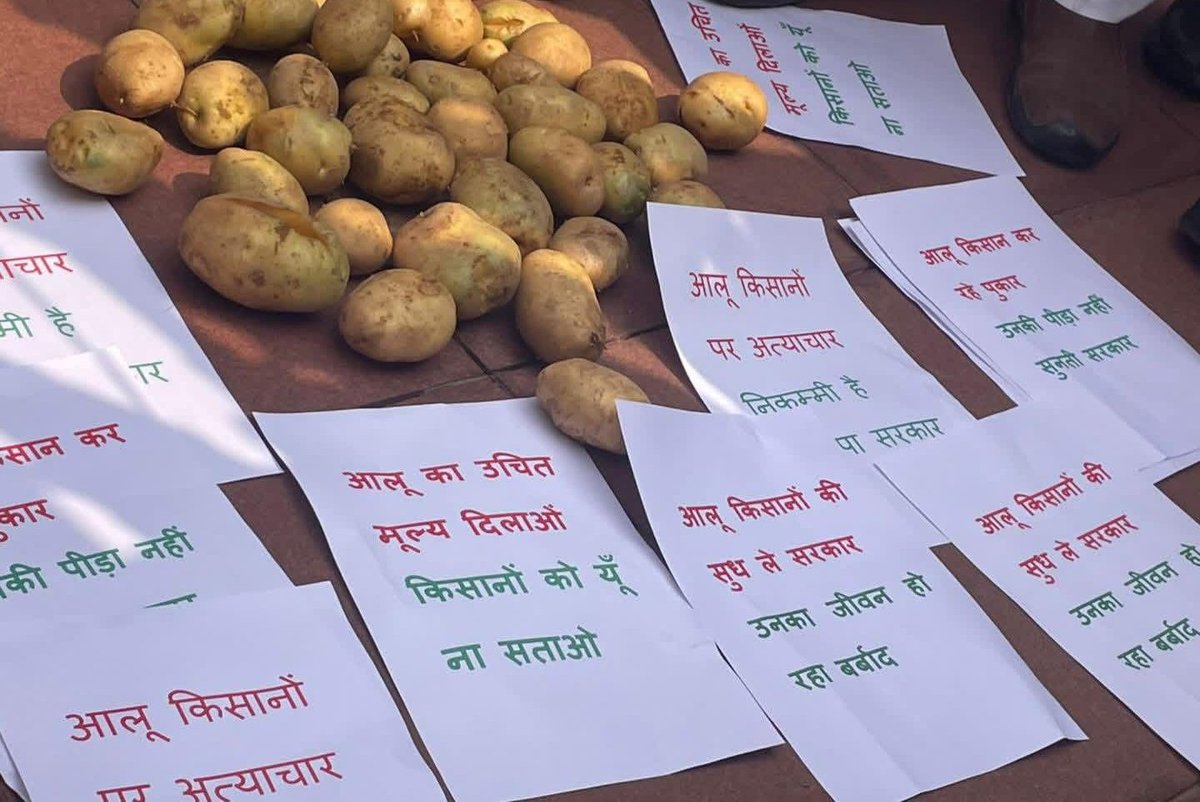 का उचित
मूल्य दिलाओं
किसानों को यूँ
ना सताओ
आलू किसान कर
रहे पुकार
उनकी पीड़ा नहीं
सुनती सरकार
आलू किसानों
पर अत्याचार
निकम्मी है
पा सरकार
है
आलू का उचित
मूल्य दिलाओं
किसानों को यूँ
ना सताओ
आलू किसानों की
सुध ले सरकार
उनका जीवन हो
रहा बर्बाद
आलू किसानों की
सुध ले सरकार
उनका जीवन हो
रहा बर्बाद
कर
पीड़ा नहीं
आलू किसानों
पर अत्याचार